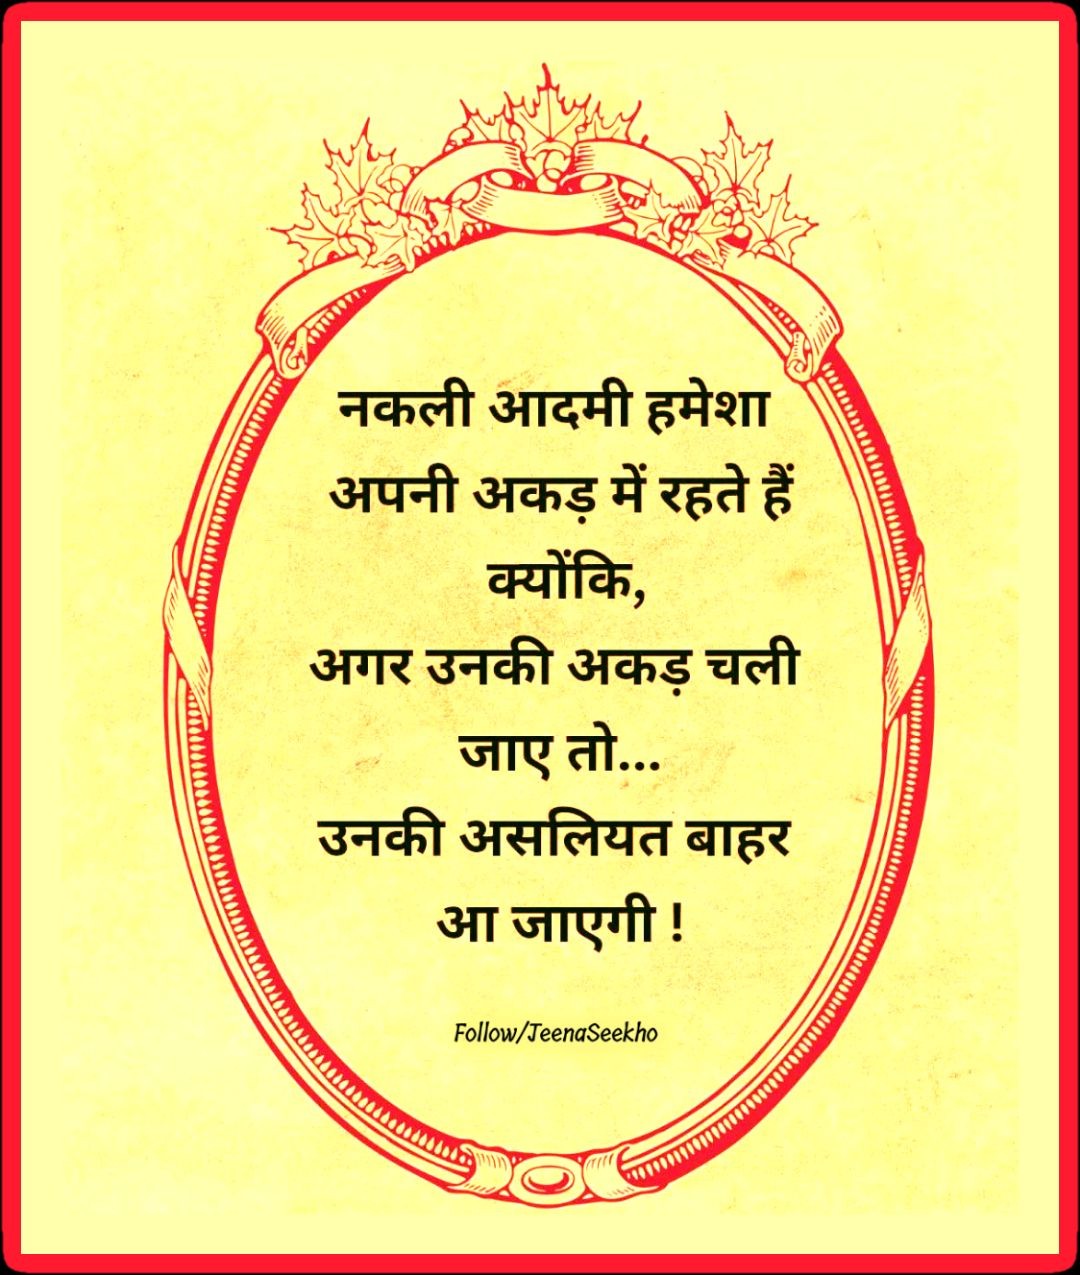 नकली आदमी हमेशा
अपनी अकड़ में रहते हैं
क्योंकि,
अगर उनकी अकड़ चली
जाए तो...
उनकी असलियत बाहर
आ जाएगी !
Follow/JeenaSeekho